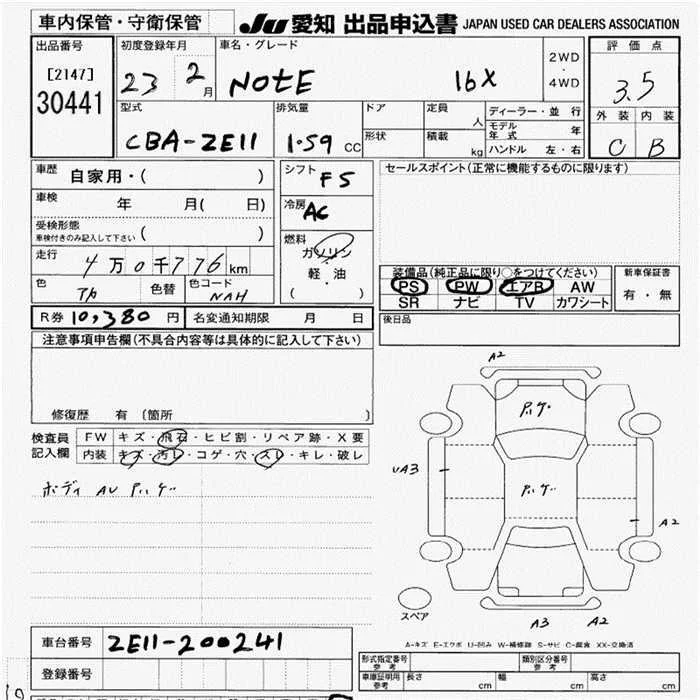 車内保管・守衛保管 JU 愛知 出品申込書 JAPAN USED CAR DEALERS ASSOCIATION
出品番号 初度登録年月 車名・グレード 評価点
[2147] 23 2月 NOTE 16X 2WD・4WD 3.5
30441
型式 排気量 ドア 定員 人 ディーラー・並行 外装 内装
CBA-ZE11 1.59 CC 形状 積載 kg モデル年式 年 C B
ハンドル 左・右
車歴 自家用・( ) シフト F5 セールスポイント(正常に機能するものに限ります)
車検 年 月( 日) 冷房 AC
受検形態 ( )
車検付きのみ記入して下さい
燃料 ガソリン・軽・油 ( )
走行 4万0千776km 装備品(純正品に限り○をつけてください) 新車保証書
色 色替 色コード NAH PS PW エアB AW 有・無
SR ナビ TV カワシート
R券 10,380円 名変通知期限 月 日 後日品
注意事項申告欄(不具合内容等は具体的に記入して下さい)
修復歴 有 (箇所 )
検査員記入欄 FW キズ・飛石・ヒビ割・リペア跡・X要
内装 キズ・汚レ・コゲ・穴・スレ・キレ・破レ
ボディ AU
A2
UA3
A2
A3 A2
スペア
A-キズ E-エクボ U-凹み W-補修跡 S-サビ C-腐食 XX-交換済
車台番号 ZE11-200241
登録番号
形式指定番号 参考 類別区分番号 参考
車庫証明用 参考 長さ cm 幅 cm 高さ cm